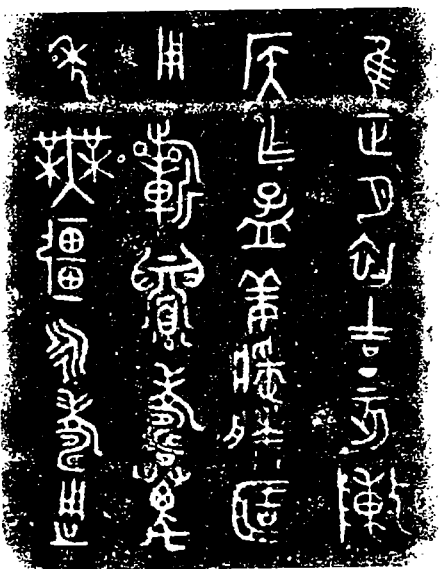 隹正月初吉丁亥敶
侯乍孟姜媵𠤳
用𣄨眉壽萬
年無疆永壽用之